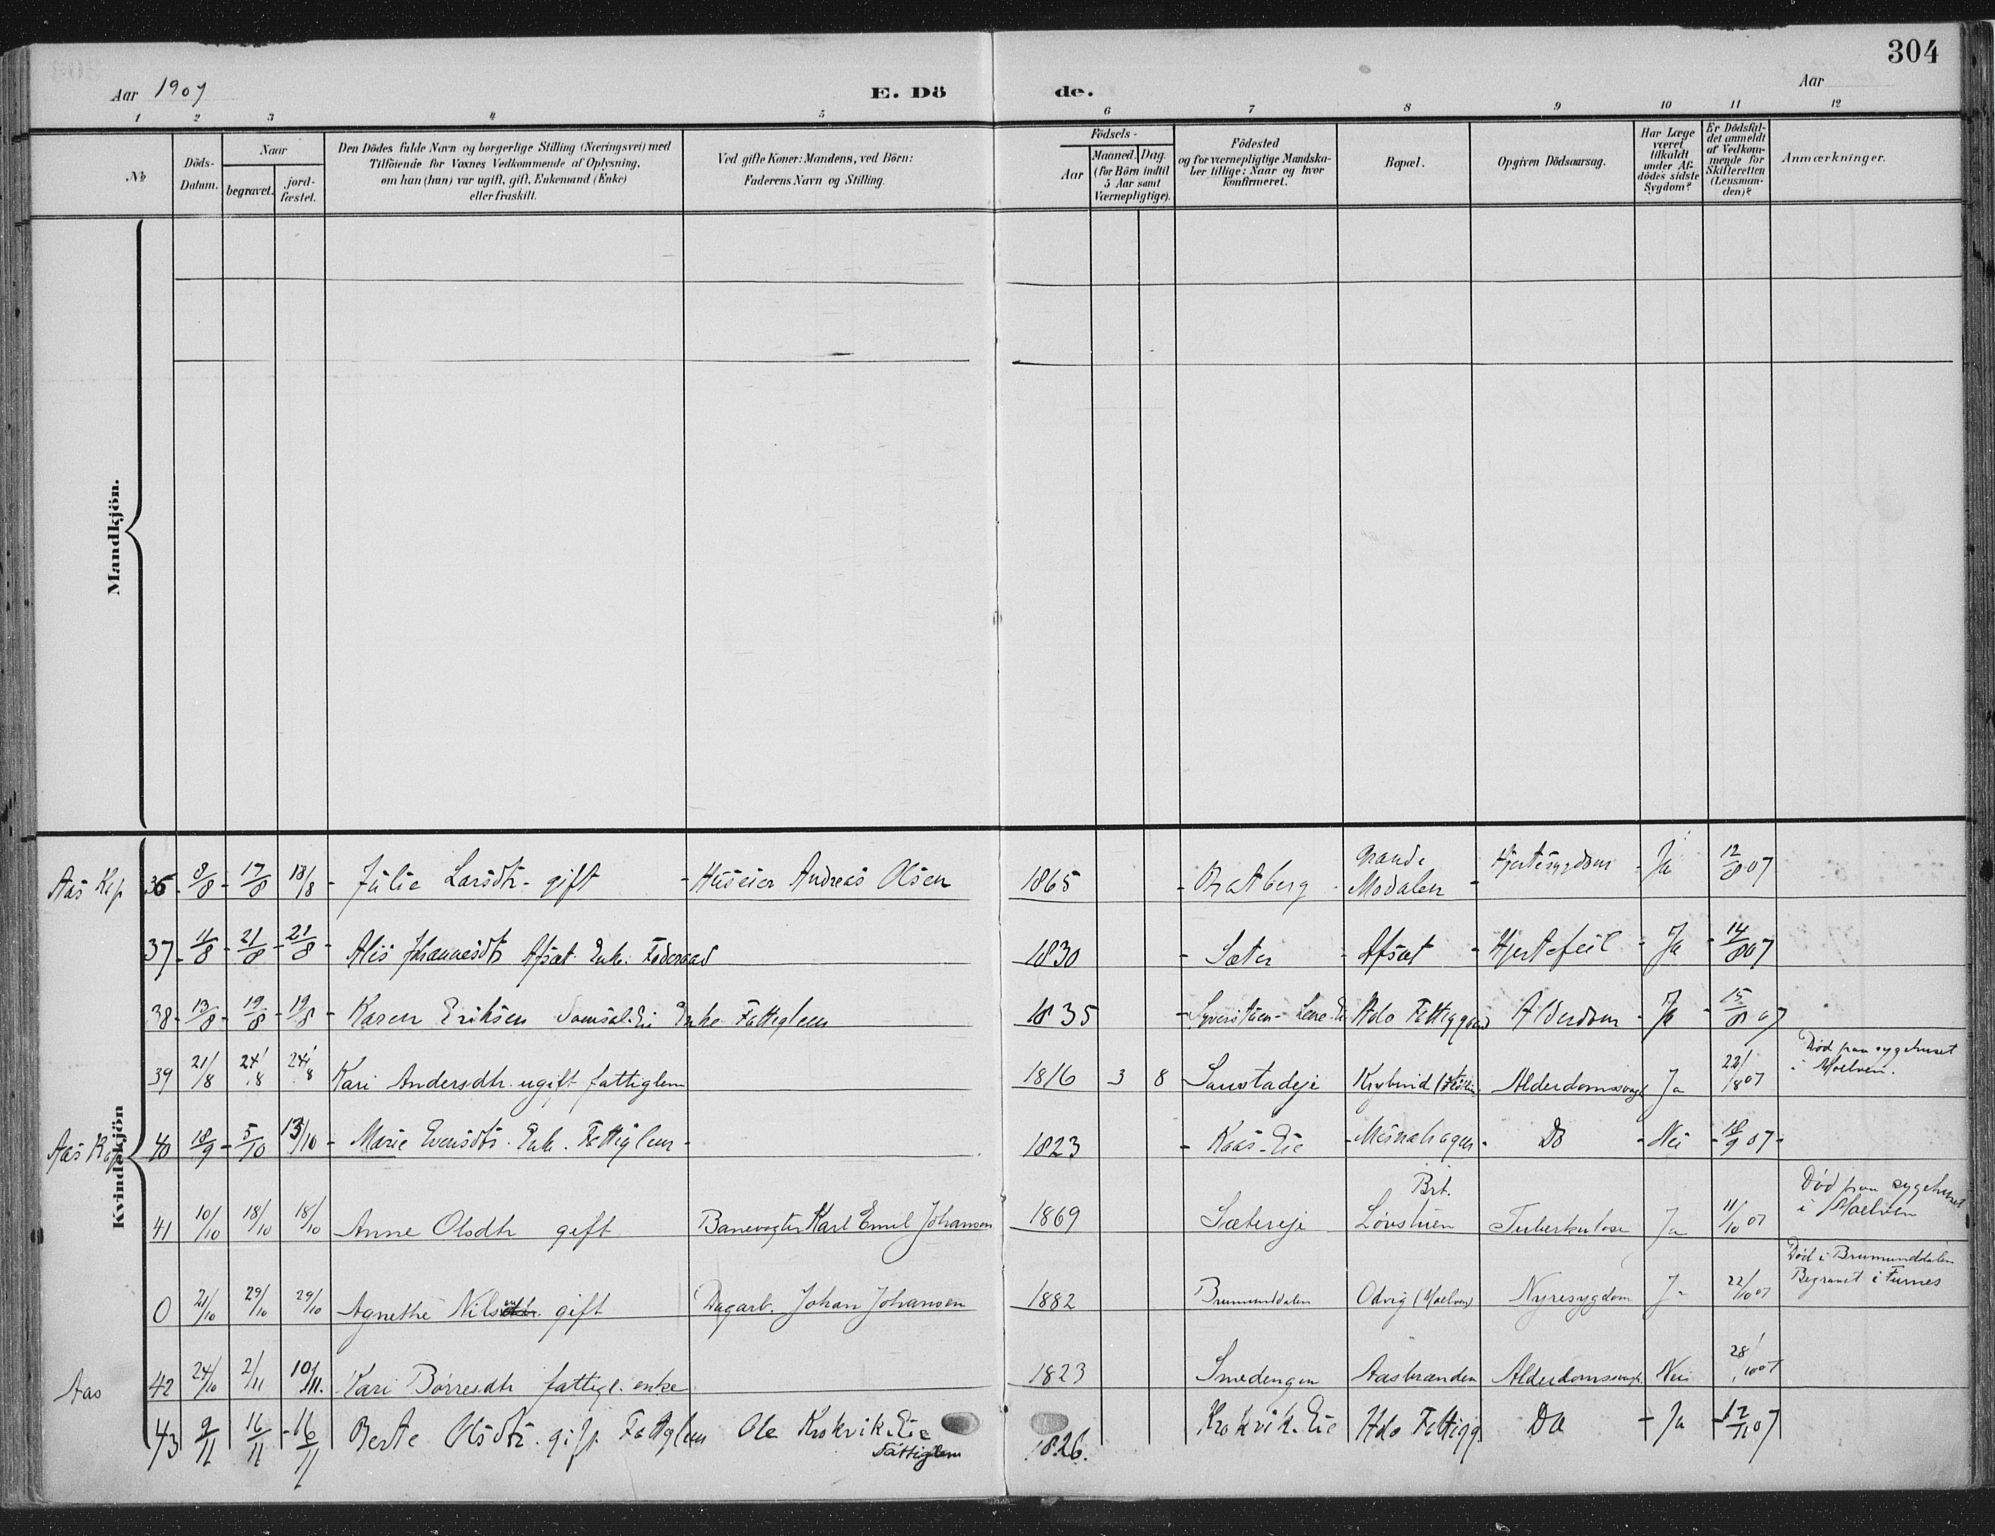 304
Aar 1907
E. Dö
de.
Aar
1 2 3 4 5 6 7 8 9 10 11 12
No
Döds-
Datum.
Naar
begravet.
jord-
fæstet.
Den Dödes fulde Navn og borgerlige Stilling (Næringsvei) med
Tilföiende for Voxnes Vedkommende af Oplysning,
om han (hun) var ugift, gift, Enkemand (Enke)
eller fraskilt.
Ved gifte Koner: Mandens, ved Börn:
Faderens Navn og Stilling.
Födsels-
Aar
Maaned. Dag.
(for Börn indtil
5 Aar samt
Værnepligtige).
Födested
og for værnepligtige Mandska-
ber tillige: Naar og hvor
konfirmeret.
Bopæl.
Opgiven Dödsaarsag.
Har Læge
været
tilkaldt
under Af-
dödes sidste
Sygdom?
Er Dödsfal-
det anmeldt
af Vedkom-
mende for
Skifteretten
(Lensman-
den)?
Anmærkninger.
Mandkjön.
Kvindekjön
Aas Kp 36 - 8/8 - 17/8 18/8 - Julie Larsdtr - gift - Huseier Andreas Olsen 1865 - Bratberg - Grande Modalen - Hjertesygdom - Ja 12/8 07
37 - 11/8 - 21/8 - 21/8 - Alis Johannesdtr Afsæt Enke. Føderaad 1830 - Sæter - Afsæt - Hjertefeil - Ja - 14/8 07
38 - 13/8 - 19/8 - 19/8 - Karen Eriksen Eie Enke Fattiglem 1835 - Ado Fattiggaard Alderdom - Ja - 15/8 07
39 21/8 24/8 24/8 Kari Andersdtr ugift fattiglem 1816 3 8 Alderdomssvagh Ja 22/8 07 Død paa sygehuset
i Moelven.
Aas Kp 40 18/9 - 5/10 13/10 - Marie Evensdtr. Enke. Fattiglem - 1823 - Kaas-Eie - Mesnahagen - Do - Nei - 18/9 07 -
41 10/10 18/10 18/10 Anne Olsdtr gift Banevogter Karl Emil Johansen 1869 Sætereje Brt. Løvstuen Tuberkulose Ja 11/10 07 Død paa sygehuset
i Moelven
0 21/10 29/10 29/10 Agnethe Nilsen gift Dagarb. Johan Johansen 1882 Brumunddalen Odvig (Moelven) Nyresygdom Ja 22/10 07 Død i Brumunddalen
Begravet i Furnes
Aas 42 24/10 2/11 10/11. Kari Børresdtr fattigl. enke 1823 Smedengen Aasbrænden Alderdomssvagh. Nei 28/10 07
43 9/11 16/11 - 16/11 Berte Olsdtr. gift Fattiglem Ole Krokvik Eie
Fattiglem 1826. Krokvik Eie Ado Fattigg Do - Ja - 12/11 07